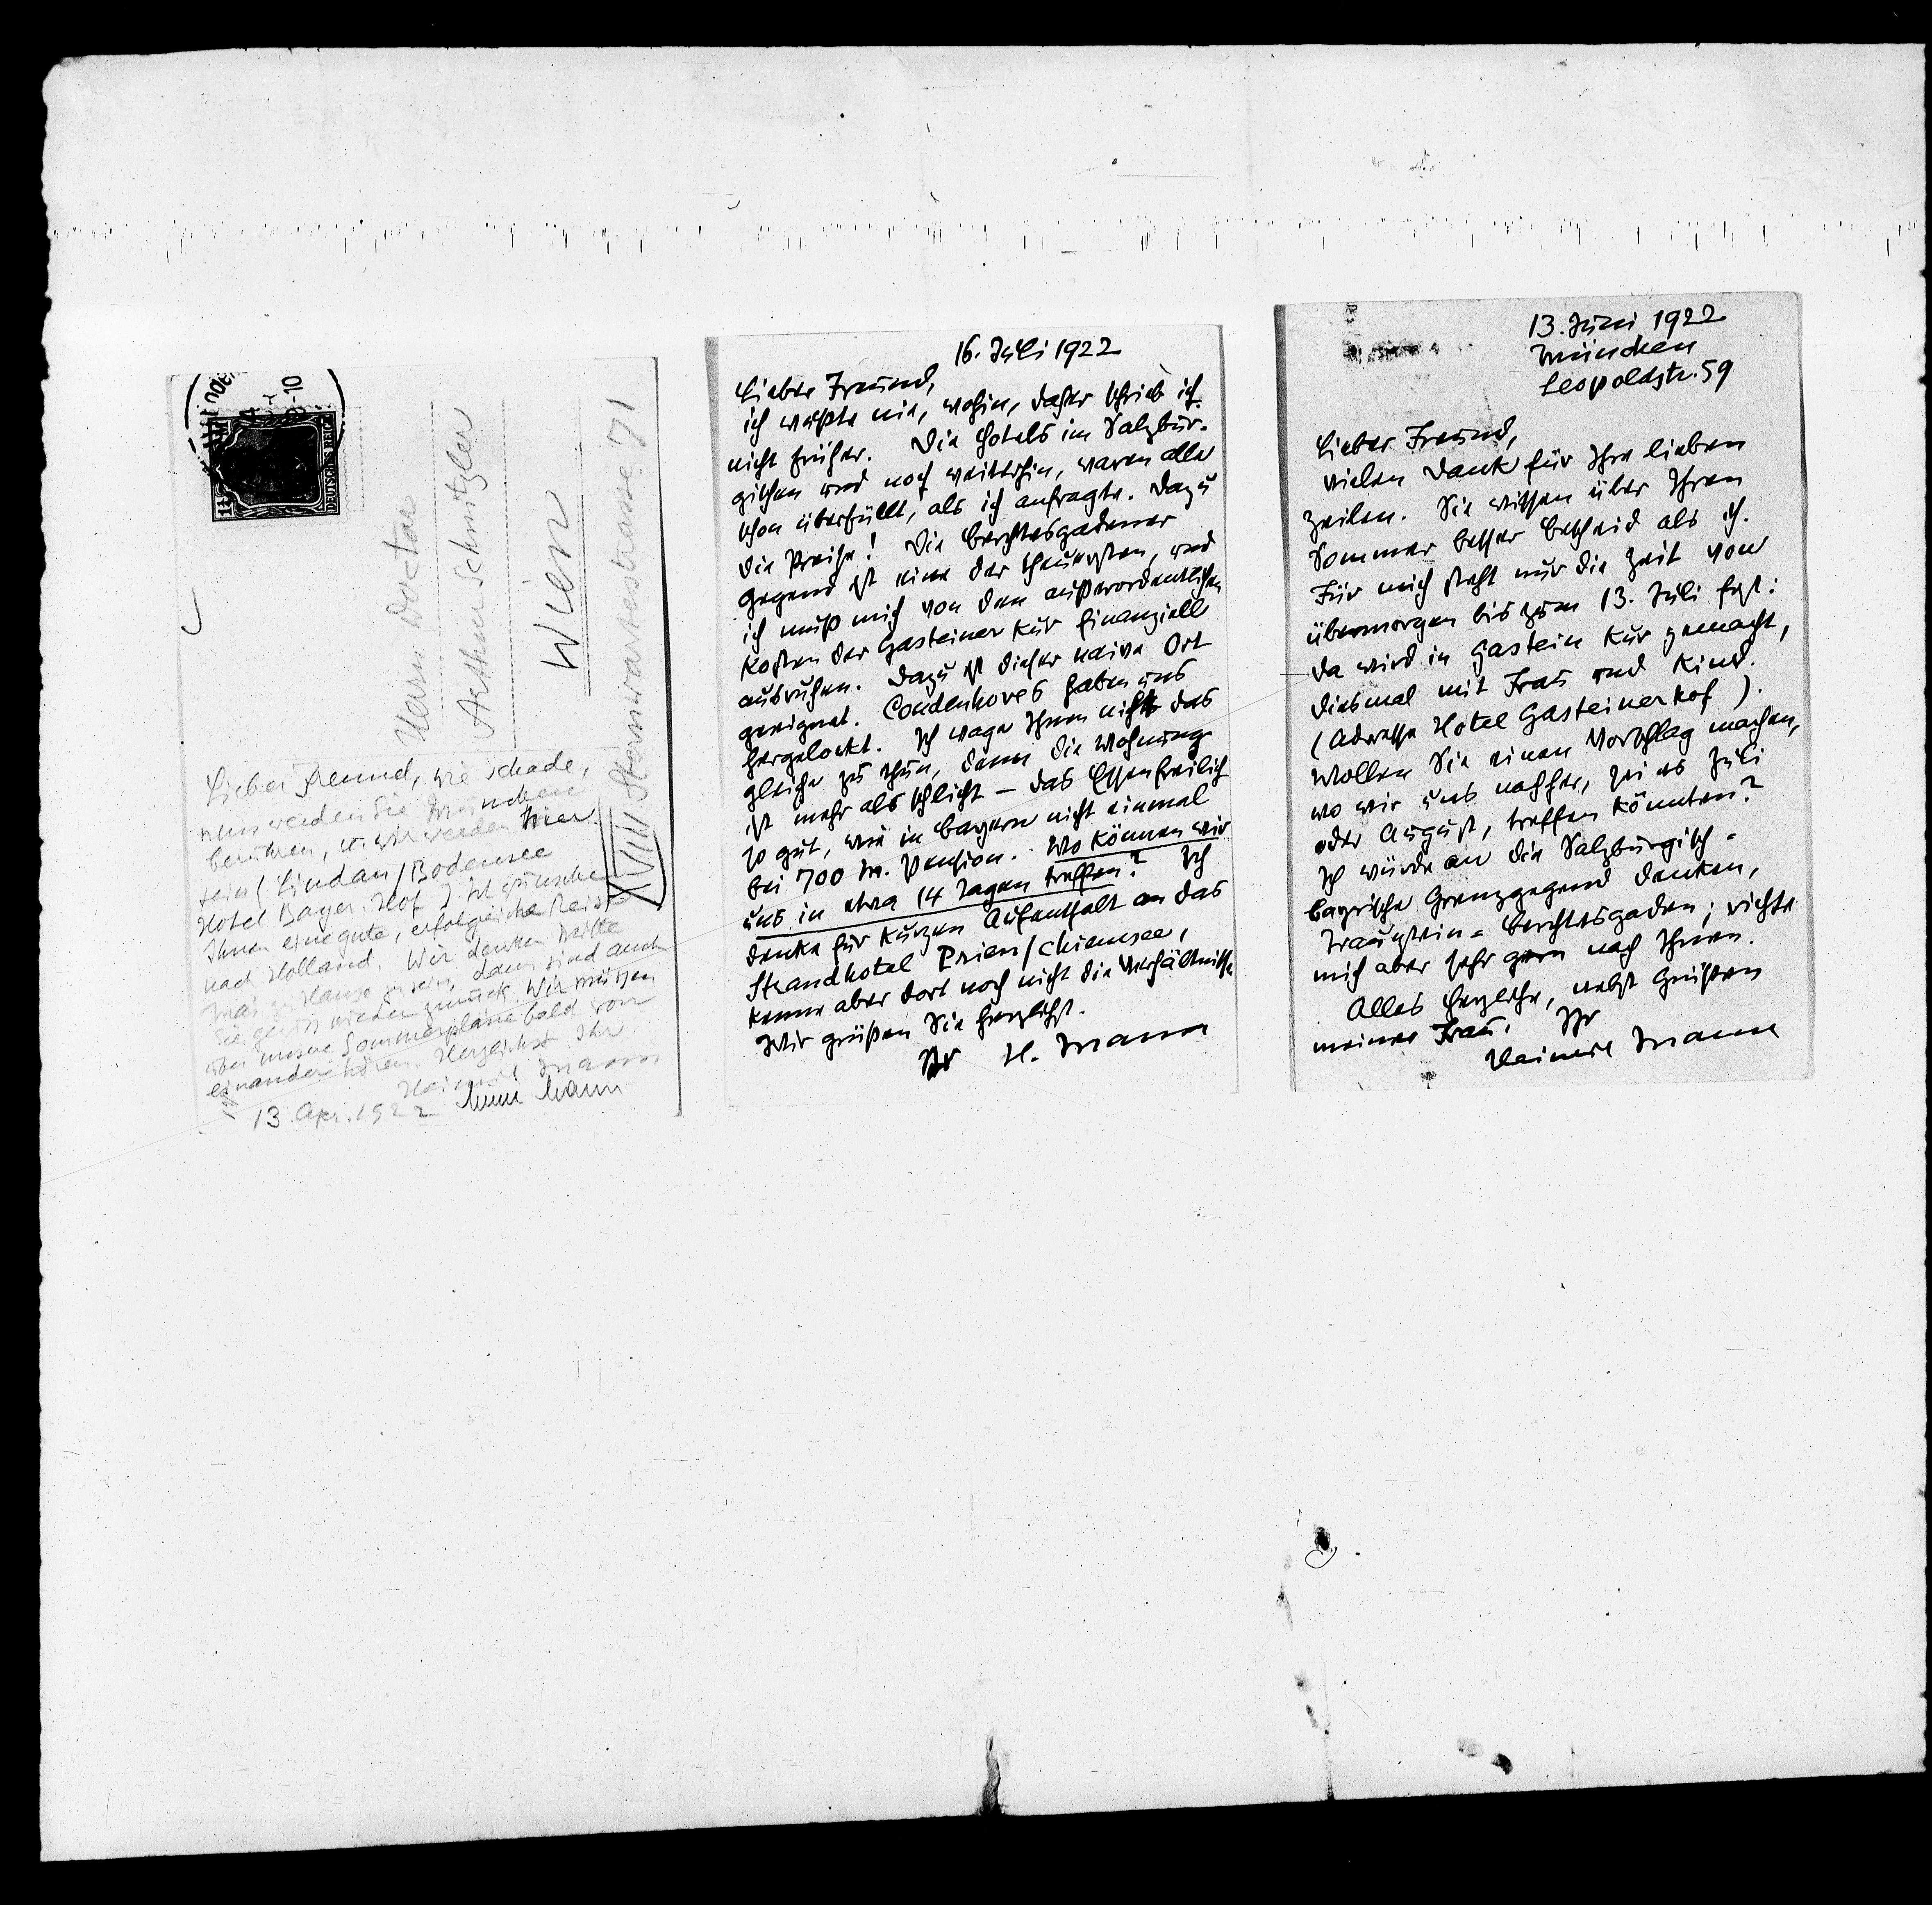 Herrn Doctor
Arthur Schnitzler
Wien
XVIII Sternwartestrasse 71
DEUTSCHES REICH
Lieber Freund, wie schade,
nun werden Sie München
berühren, u. wir werden hier
sein (Lindau/Bodensee
Hotel Bayer. Hof). Ich wünsche
Ihnen eine gute, erfolgreiche Reise
nach Holland. Wir denken Mitte
Mai zu Hause zu sein, dann sind auch
Sie gewiss wieder zurück. Wir müssen
über unsere Sommerpläne bald von
einander hören. Herzlichst Ihr
Heinrich Mann
13. Apr. 1922 Mimi Mann
16. Juli 1922
Lieber Freund,
ich wußte nie, wohin, daher schrieb ich
nicht früher. Die Hotels im Salzbur-
gischen und noch weiterhin, waren alle
schon überfüllt, als ich anfragte. Dazu
die Preise! Die Berchtesgadener
Gegend ist eine der theuersten, und
ich muß mich von den außerordentlichen
Kosten der Gasteiner Kur finanziell
ausruhen. Dazu ist dieser naive Ort
geeignet. Coudenhoves haben uns
hergelockt. Ich wage Ihnen nicht das
gleiche zu thun, denn die Wohnung
ist mehr als schlicht – das Essen freilich
so gut, wie in Bayern nicht einmal
bei 700 M. Pension. Wo können wir
uns in etwa 14 Tagen treffen? Ich
denke für kurzen Aufenthalt an das
Strandhotel Prien/Chiemsee,
kenne aber dort noch nicht die Verhältnisse
Wir grüßen Sie herzlichst.
Ihr H. Mann
13. Juni 1922
München
Leopoldstr. 59
Lieber Freund,
vielen Dank für Ihre lieben
Zeilen. Sie wissen über Ihren
Sommer besser Bescheid als ich.
Für mich steht nur die Zeit von
übermorgen bis zum 13. Juli fest:
da wird in Gastein Kur gemacht,
diesmal mit Frau und Kind.
(Adresse Hotel Gasteinerhof).
Wollen Sie einen Vorschlag machen,
wo wir uns nachher, sei es Juli
oder August, treffen könnten?
Ich würde an die Salzburgisch-
bayrische Grenzgegend denken,
Traunstein-Berchtesgaden; richte
mich aber sehr gern nach Ihnen.
Alles Herzliche, nebst Grüßen
meiner Frau. Ihr
Heinrich Mann